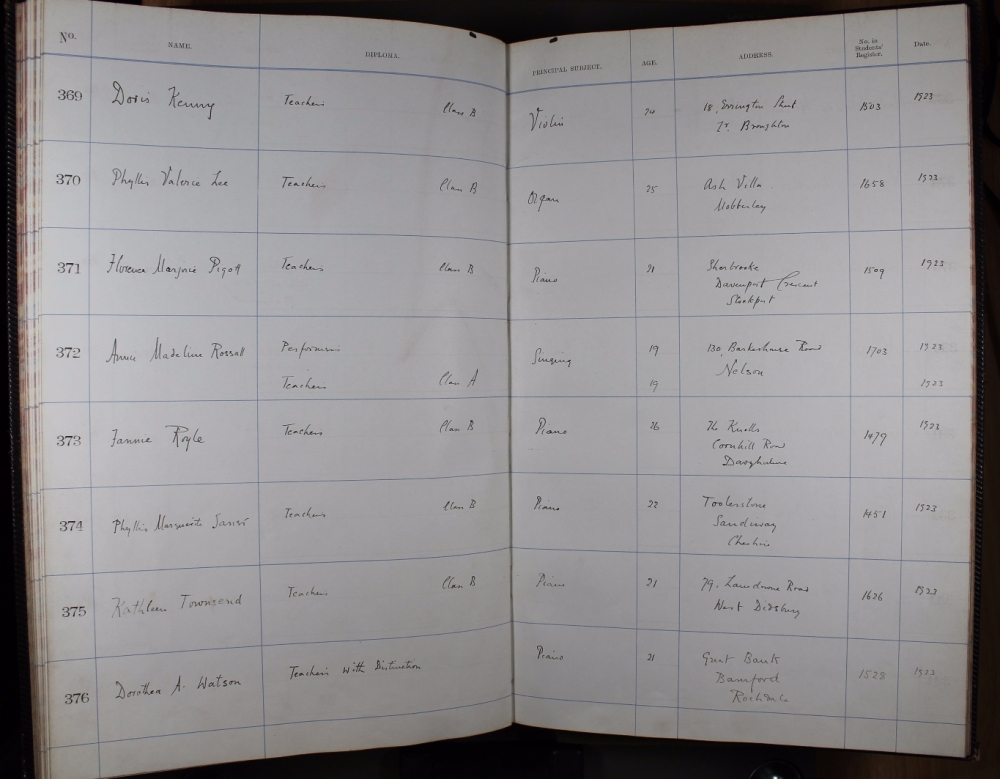 No. NAME. DIPLOMA. PRINCIPAL SUBJECT. AGE. ADDRESS. No. in Students' Register. Date.
369 Doris Kenny Teachers Class B Violin 18, Street 1503 1923
Hr. Broughton
370 Phyllis Valerie Lee Teachers Class B Organ 25 Ash Villa 1658 1923
Mobberley
371 Florence Marjorie Pigott Teachers Class B Piano 21 Sherbrooke 1509 1923
Davenport Crescent
Stockport
372 Annie Madeline Rossall Performers Singing 19 130, Barkerhouse Road 1703 1923
Nelson
Teachers Class A 19 1923
373 Fannie Royle Teachers Class B Piano 26 The Knolls 1479 1923
Cornhill Road
Davyhulme
374 Phyllis Marguerite Teachers Class B Piano 22 1451 1923
Sandiway
Cheshire
375 Kathleen Townsend Teachers Class B Piano 21 79, Lansdowne Road 1626 1923
West Didsbury
376 Dorothea A. Watson Teachers with Distinction Piano 21 Bank 1528 1923
Bamford
Rochdale